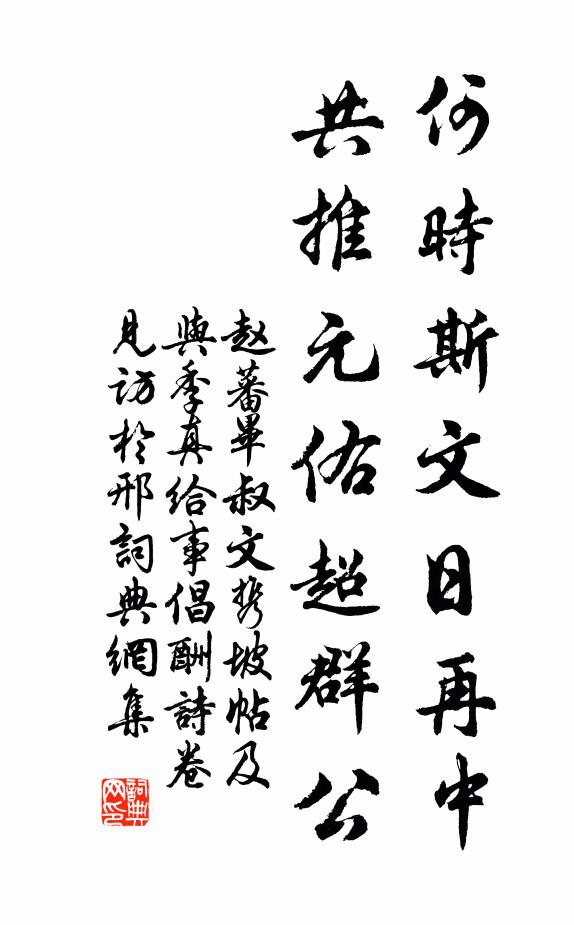 何時斯文日再中
共推元佑超群公
赵蕃畢叔文携坡帖及
與季真給事倡酬詩卷
見訪於邢詞典網集
詞典網印